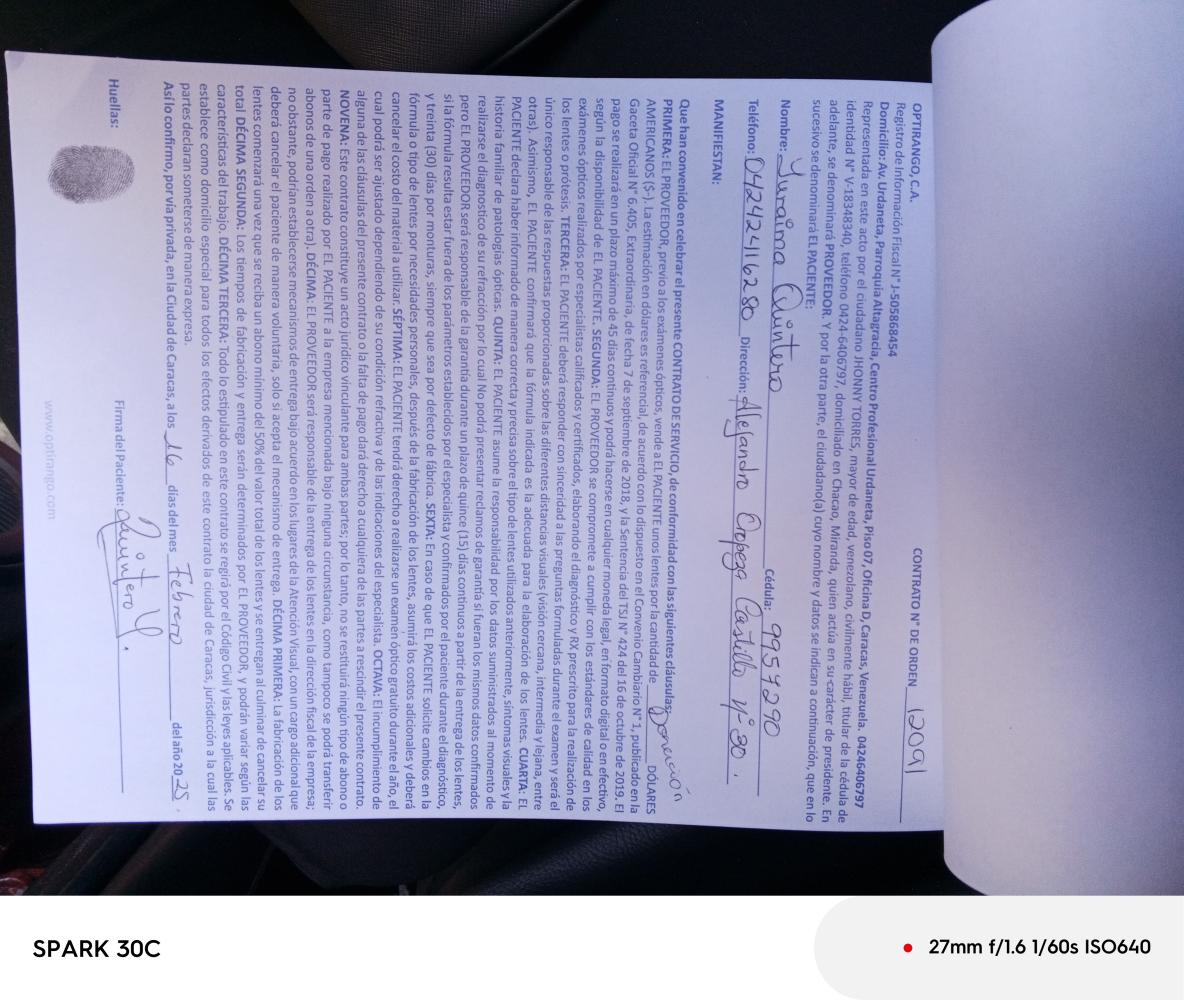 OPTIRANGO, C.A. CONTRATO N° DE ORDEN 12091
Registro de Información Fiscal N° J-505868454
Domicilio: Av. Urdaneta, Parroquia Altagracia, Centro Profesional Urdaneta, Piso 07, Oficina D, Caracas, Venezuela. 04246406797
Representada en este acto por el ciudadano JHONNY TORRES, mayor de edad, venezolano, civilmente hábil, titular de la cédula de
identidad N° V-18348340, teléfono 0424-6406797, domiciliado en Chacao, Miranda, quien actúa en su carácter de presidente. En
adelante, se denominará PROVEEDOR. Y por la otra parte, el ciudadano(a) cuyo nombre y datos se indican a continuación, que en lo
sucesivo se denominará EL PACIENTE:
Nombre: Yuraima Quintero Cédula: 9959290
Teléfono: 04242416280 Dirección: Alejandro Oropeza Castillo N-30.
MANIFIESTAN:
Que han convenido en celebrar el presente CONTRATO DE SERVICIO, de conformidad con las siguientes cláusulas:
PRIMERA: EL PROVEEDOR, previo a los exámenes ópticos, vende a EL PACIENTE unos lentes por la cantidad de Donación DÓLARES
AMERICANOS ($-). La estimación en dólares es referencial, de acuerdo con lo dispuesto en el Convenio Cambiario N° 1, publicado en la
Gaceta Oficial N° 6.405, Extraordinaria, de fecha 7 de septiembre de 2018, y la Sentencia del TSJ N° 424 del 16 de octubre de 2019. El
pago se realizará en un plazo máximo de 45 días continuos y podrá hacerse en cualquier moneda legal, en formato digital o en efectivo,
según la disponibilidad de EL PACIENTE. SEGUNDA: EL PROVEEDOR se compromete a cumplir con los estándares de calidad en los
exámenes ópticos realizados por especialistas calificados y certificados, elaborando el diagnóstico y RX prescrito para la realización de
los lentes o prótesis. TERCERA: EL PACIENTE deberá responder con sinceridad a las preguntas formuladas durante el examen y será el
único responsable de las respuestas proporcionadas sobre las diferentes distancias visuales (visión cercana, intermedia y lejana, entre
otras). Asimismo, EL PACIENTE confirmará que la fórmula indicada es la adecuada para la elaboración de los lentes. CUARTA: EL
PACIENTE declara haber informado de manera correcta y precisa sobre el tipo de lentes utilizados anteriormente, síntomas visuales y la
historia familiar de patologías ópticas. QUINTA: EL PACIENTE asume la responsabilidad por los datos suministrados al momento de
realizarse el diagnostico de su refracción por lo cual No podrá presentar reclamos de garantía si fueran los mismos datos confirmados
pero EL PROVEEDOR será responsable de la garantía durante un plazo de quince (15) días continuos a partir de la entrega de los lentes,
si la fórmula resulta estar fuera de los parámetros establecidos por el especialista y confirmados por el paciente durante el diagnóstico,
y treinta (30) días por monturas, siempre que sea por defecto de fábrica. SEXTA: En caso de que EL PACIENTE solicite cambios en la
fórmula o tipo de lentes por necesidades personales, después de la fabricación de los lentes, asumirá los costos adicionales y deberá
cancelar el costo del material a utilizar. SÉPTIMA: EL PACIENTE tendrá derecho a realizarse un examen óptico gratuito durante el año, el
cual podrá ser ajustado dependiendo de su condición refractiva y de las indicaciones del especialista. OCTAVA: El incumplimiento de
alguna de las cláusulas del presente contrato o la falta de pago dará derecho a cualquiera de las partes a rescindir el presente contrato.
NOVENA: Este contrato constituye un acto jurídico vinculante para ambas partes; por lo tanto, no se restituirá ningún tipo de abono o
parte de pago realizado por EL PACIENTE a la empresa mencionada bajo ninguna circunstancia, como tampoco se podrá transferir
abonos de una orden a otra). DÉCIMA: EL PROVEEDOR será responsable de la entrega de los lentes en la dirección fiscal de la empresa;
no obstante, podrían establecerse mecanismos de entrega bajo acuerdo en los lugares de la Atención Visual, con un cargo adicional que
deberá cancelar el paciente de manera voluntaria, solo si acepta el mecanismo de entrega. DÉCIMA PRIMERA: La fabricación de los
lentes comenzará una vez que se reciba un abono mínimo del 50% del valor total de los lentes y se entregan al culminar de cancelar su
total DÉCIMA SEGUNDA: Los tiempos de fabricación y entrega serán determinados por EL PROVEEDOR, y podrán variar según las
características del trabajo. DÉCIMA TERCERA: Todo lo estipulado en este contrato se regirá por el Código Civil y las leyes aplicables. Se
establece como domicilio especial para todos los efectos derivados de este contrato la ciudad de Caracas, jurisdicción a la cual las
partes declaran someterse de manera expresa.
Así lo confirmo, por vía privada, en la Ciudad de Caracas, a los 16 días del mes Febrero del año 2025.
Huellas: Firma del Paciente: Quintero
www.optirango.com
SPARK 30C
27mm f/1.6 1/60s ISO640